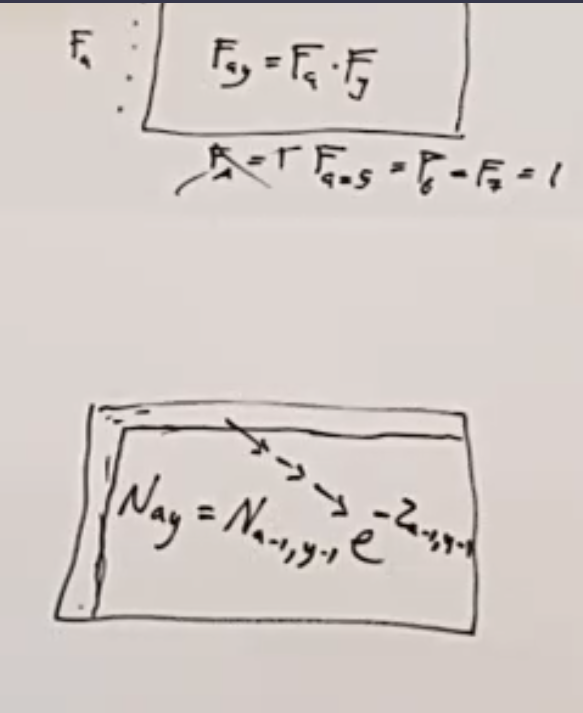 F_a
F_{ay} = F_a · F_y
F_{a=5} = F_6 = F_7 = 1
N_{ay} = N_{a-1,y-1} e^{-Z_{a-1,y-1}}